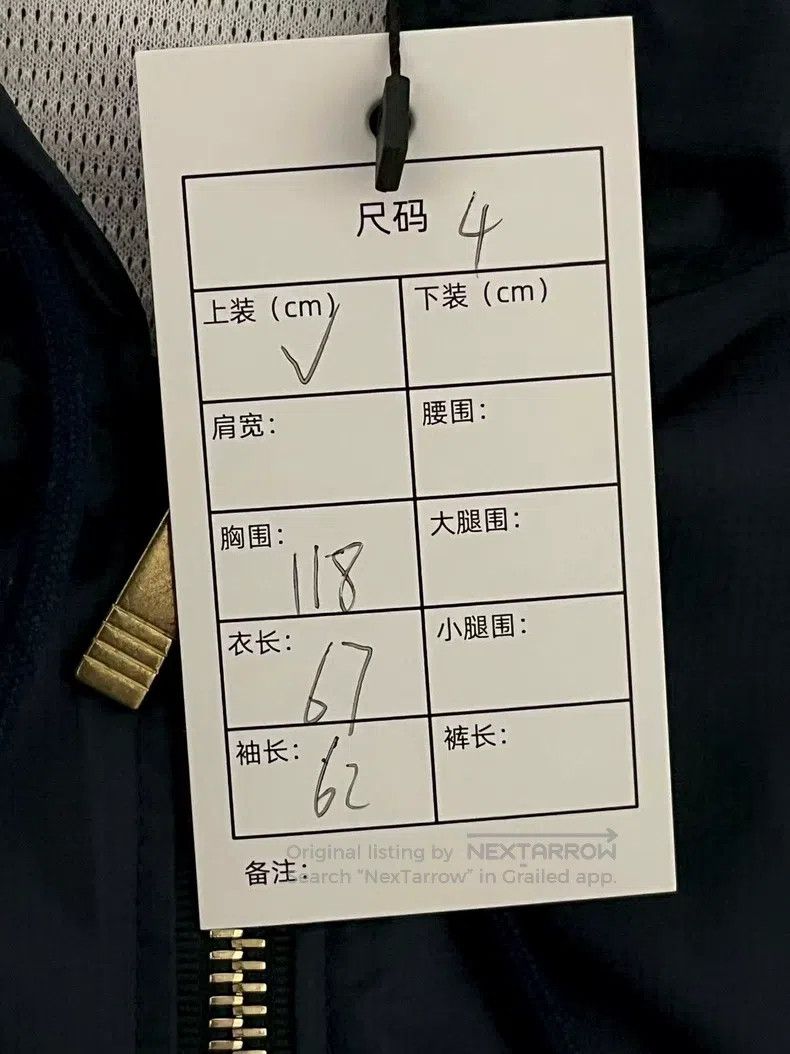 尺码 4
上装（cm） 下装（cm）
✓
肩宽： 腰围：
胸围： 大腿围：
118
衣长： 小腿围：
67
袖长： 裤长：
62
备注：
Original listing by NEXTARROW
Search "NexTarrow" in Grailed app.